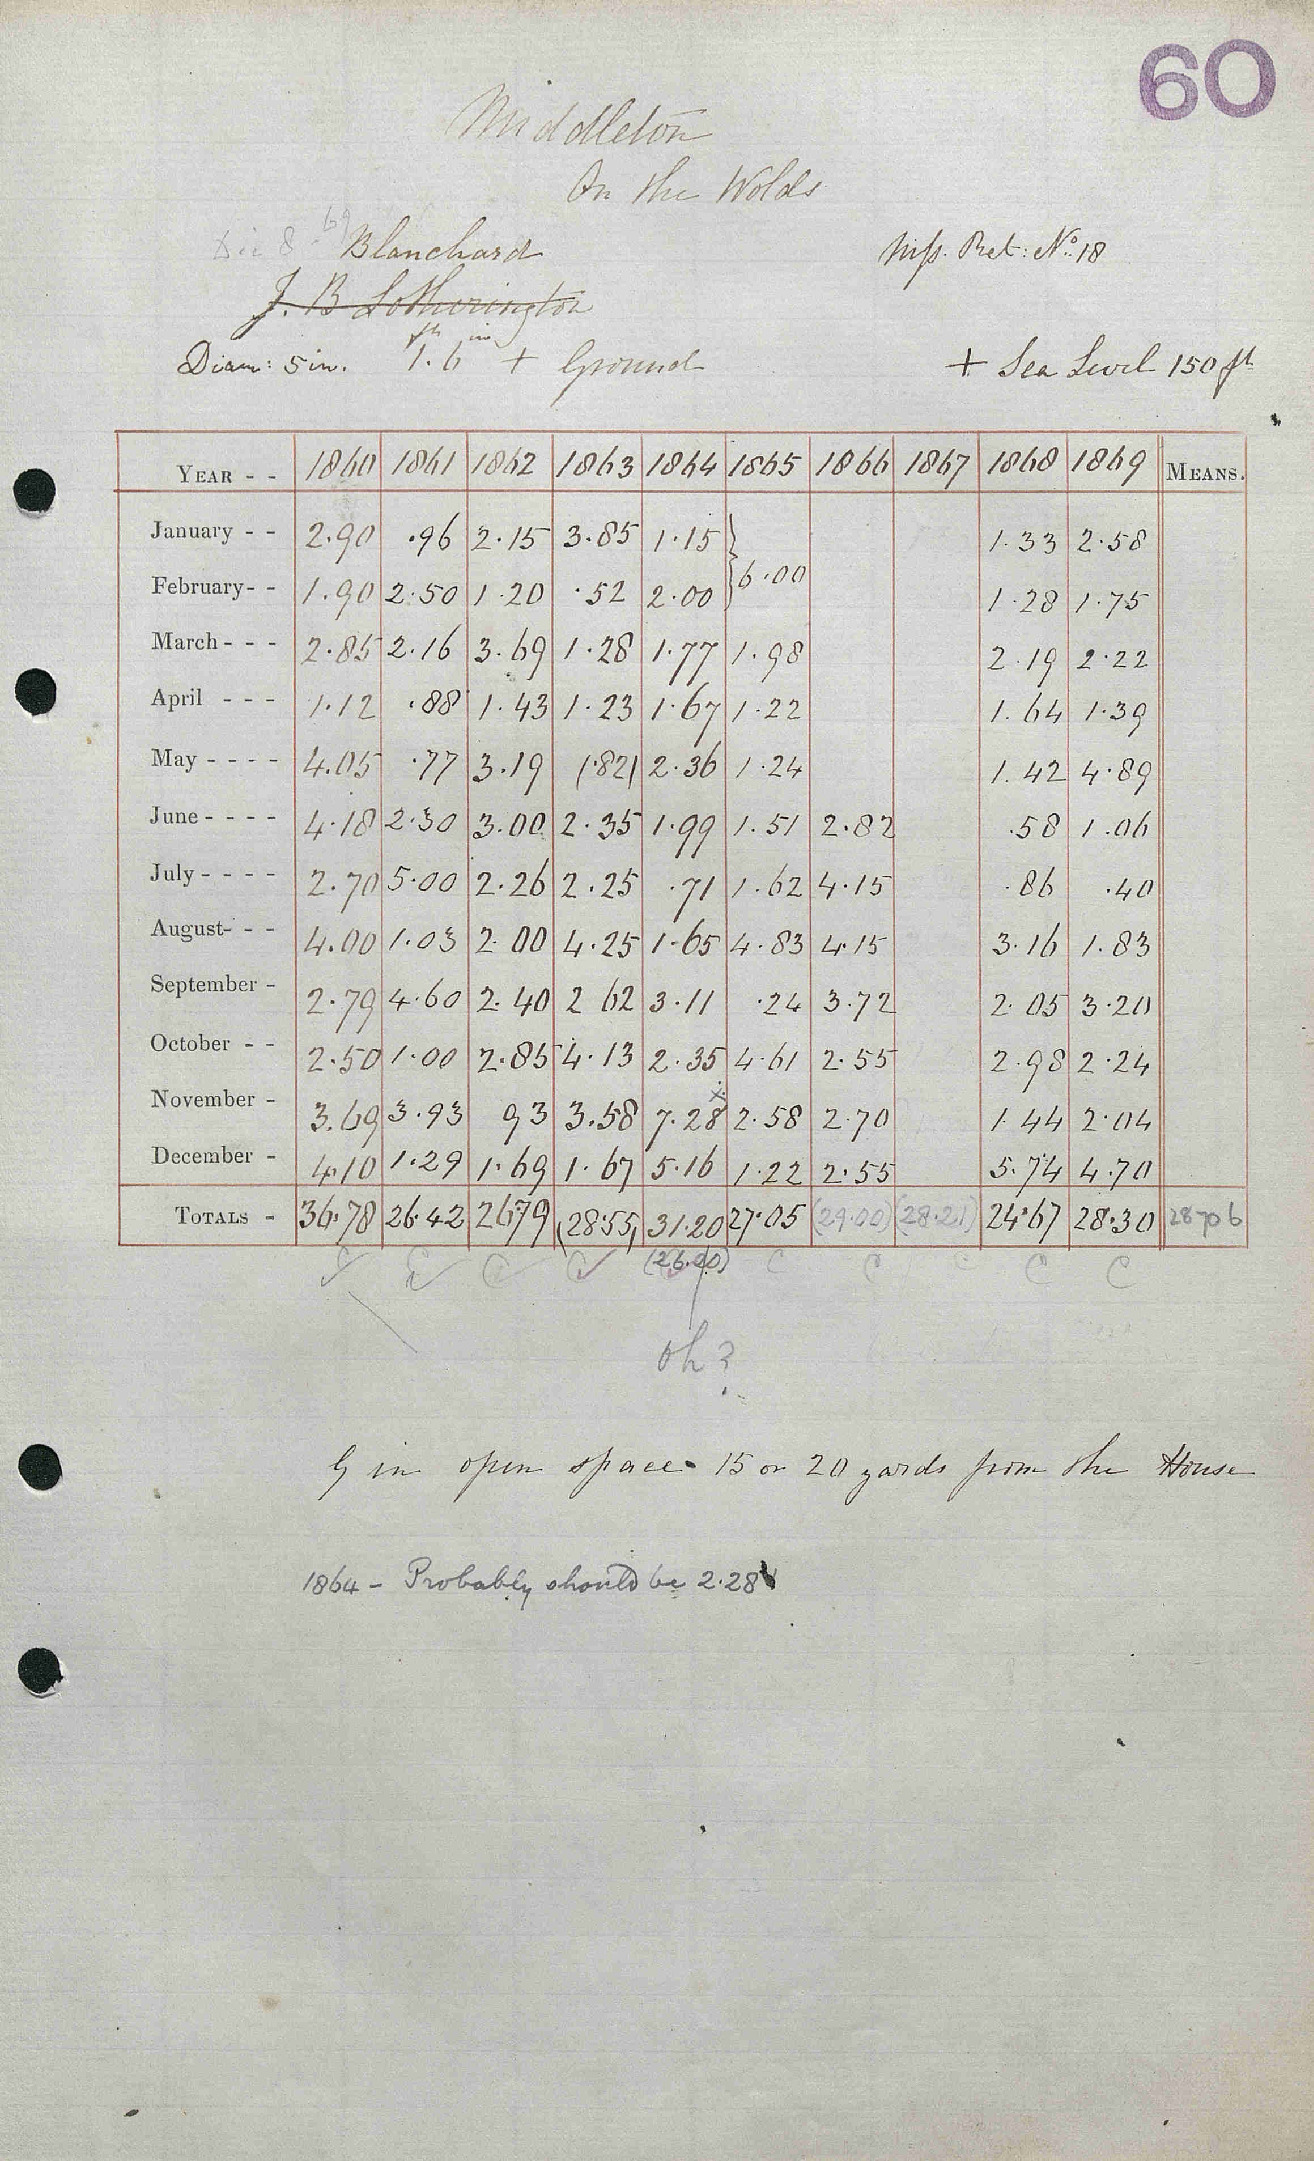 60
Middleton
On the Wolds
Blanchard
J. B Lotherington
Mss. Ret: No. 18
Diam: 5 in. 1 ft. 6 in + Ground
+ Sea Level 150 ft
YEAR - - 1860 1861 1862 1863 1864 1865 1866 1867 1868 1869 MEANS.
January - - 2.90 .96 2.15 3.85 1.15 } 6.00 1.33 2.58
February - - 1.90 2.50 1.20 .52 2.00 1.28 1.75
March - - - 2.85 2.16 3.69 1.28 1.77 1.98 2.19 2.22
April - - - 1.12 .88 1.43 1.23 1.67 1.22 1.64 1.39
May - - - - 4.05 .77 3.19 (.82) 2.36 1.24 1.42 4.89
June - - - - 4.18 2.30 3.00 2.35 1.99 1.51 2.82 .58 1.06
July - - - - 2.70 5.00 2.26 2.25 .71 1.62 4.15 .86 .40
August - - - 4.00 1.03 2.00 4.25 1.65 4.83 4.15 3.16 1.83
September - 2.79 4.60 2.40 2 62 3.11 .24 3.72 2.05 3.20
October - - 2.50 1.00 2.85 4.13 2.35 4.61 2.55 2.98 2.24
November - 3.69 3.93 93 3.58 7.28 x 2.58 2.70 1.44 2.04
December - 4.10 1.29 1.69 1.67 5.16 1.22 2.55 5.74 4.70
TOTALS - 36.78 26.42 26.79 (28.55) 31.20 27.05 (29.00) (28.21) 24.67 28.30 28706
(26.20)
C C C C C C C C C
oh?
G in open space 15 or 20 yards from the House
1864 - Probably should be 2.28